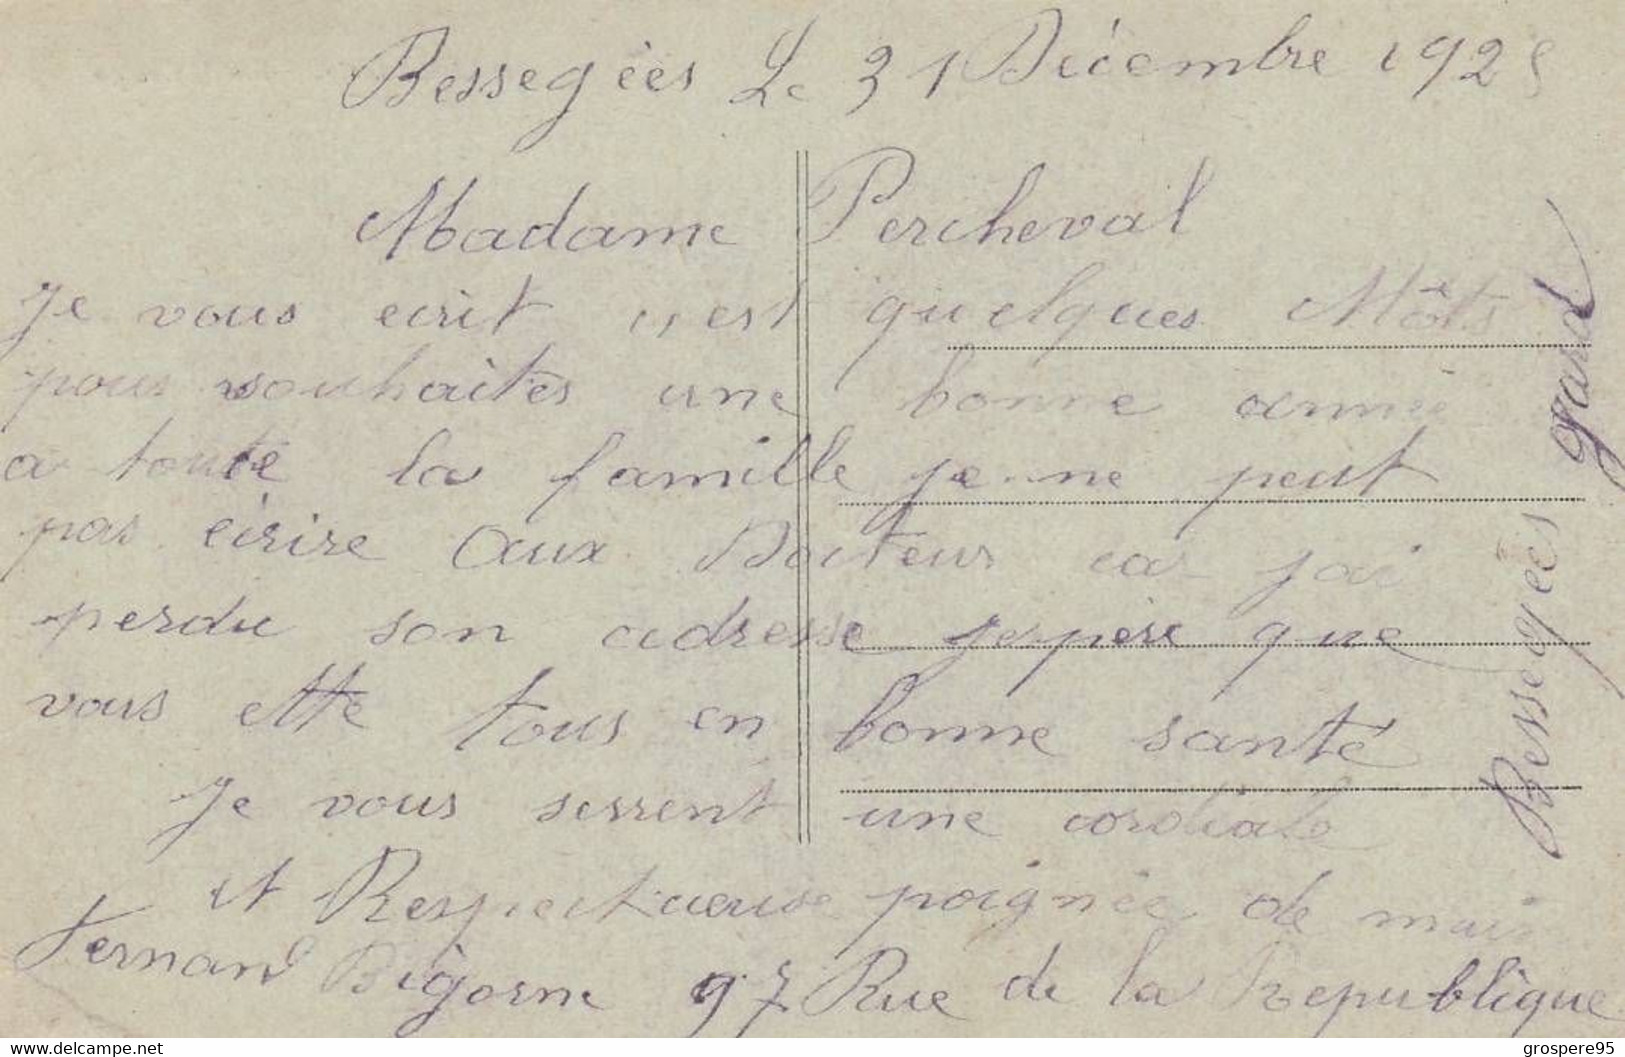 Bessegées Le 31 Décembre 192
Madame Percheval
Je vous ecrit est quelques Môts
pour souhaites une bonne année
a toute la famille je ne peut
pas écrire Aux Docteur car jai
perdu son adresse jespère que
vous ette tous en bonne santé
Je vous serrent une cordiale
et Respectueuse poignée de main
Fernand Bigorne 97 Rue de la République
Bessegées gard
www.delcampe.net
grospere95